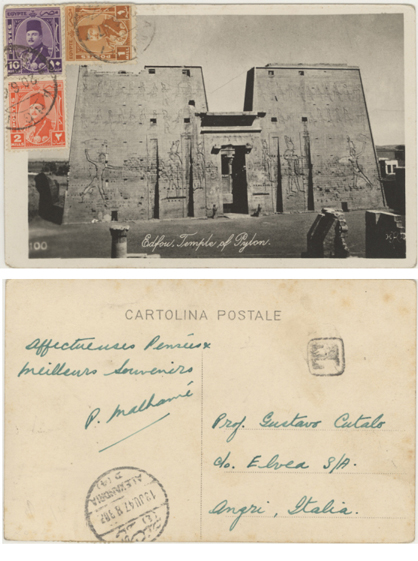 EGYPTE
10
1
2
100
Edfou. Temple of Pylon.
CARTOLINA POSTALE
Affectueuses Pensées
Meilleurs Souvenirs
P. Malhamé
Prof. Gustavo Cutalo
c/o. Elvea S/A.
Angri, Italia.
ALEXANDRIA